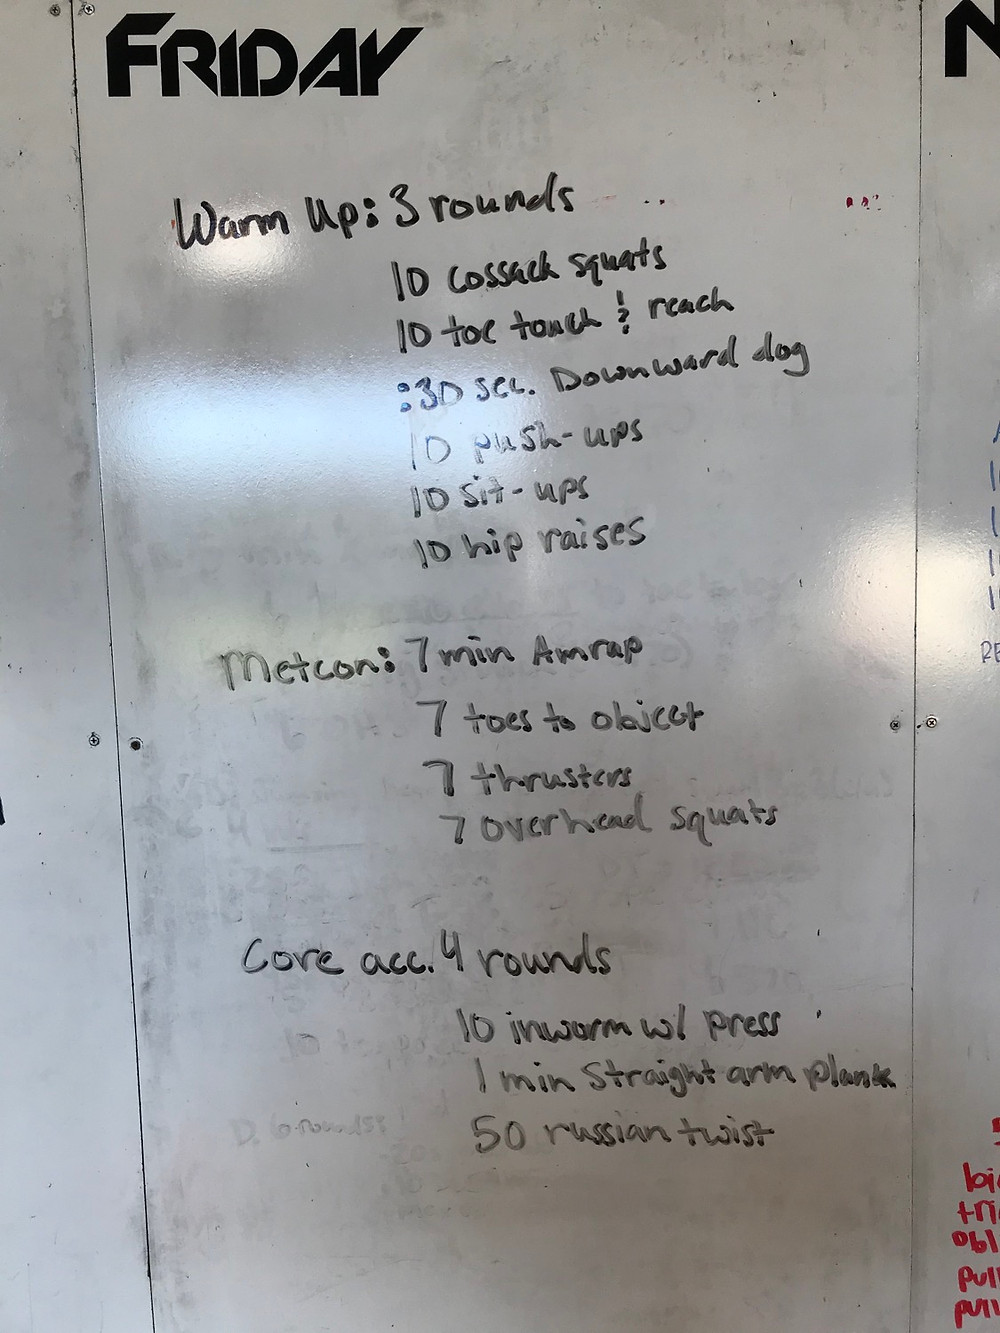 FRIDAY
Warm Up: 3 rounds
10 cossack squats
10 toe touch & reach
:30 sec. Downward dog
10 push-ups
10 sit-ups
10 hip raises
Metcon: 7 min Amrap
7 toes to object
7 thrusters
7 overhead squats
Core acc. 4 rounds
10 inworm w/ press
1 min Straight arm plank
50 russian twist
D. 6 rounds:
RE
bi
tri
obl
pull
pull